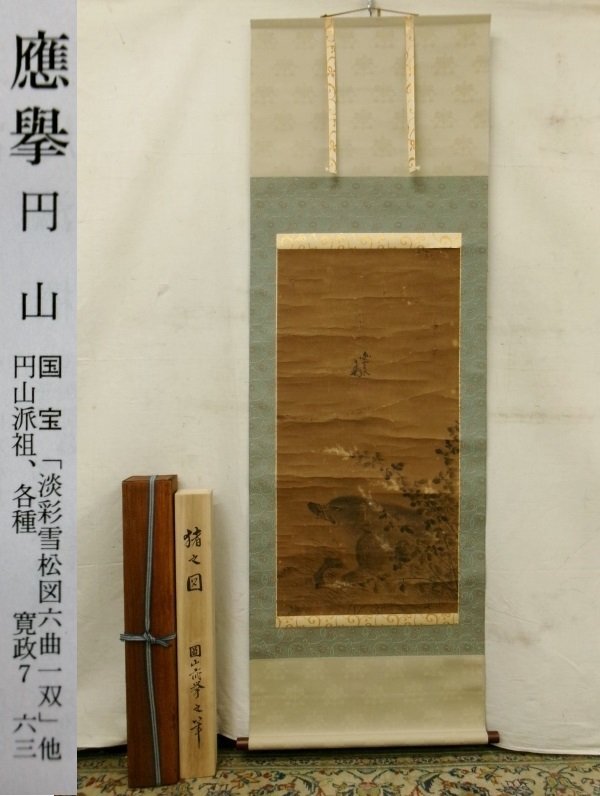 應擧 円山
国宝「淡彩雪松図六曲一双」他
円山派祖、各種 寛政7 六三
猪之図
圓山應擧之筆